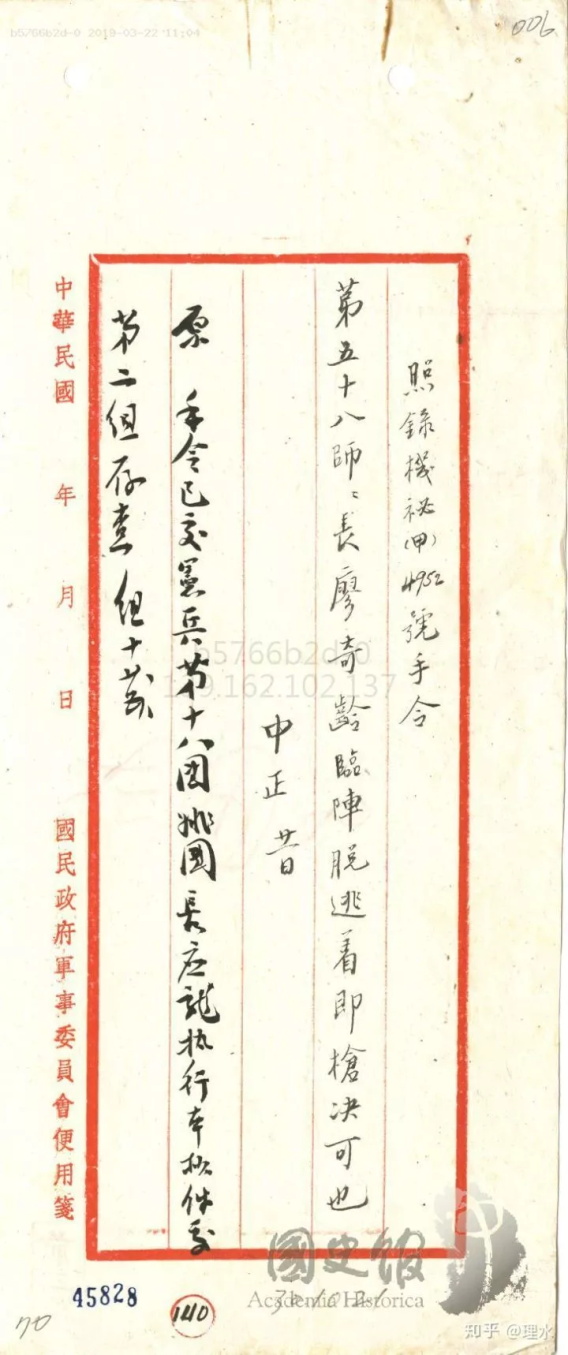 b5766b2d-0 2019-03-22 11:04
006
照錄機祕(甲)4952號手令
第五十八師〻長廖奇齡臨陣脫逃着即槍决可也
中正 廿日
原 手令已交憲兵第十八團姚團長应龍执行本抄件交
第二組存查 組十
中華民國 年 月 日 國民政府軍事委員會便用箋
b5766b2d-0
162.102.137
45828
140
國史館
Academia Historica
70
知乎 @理水